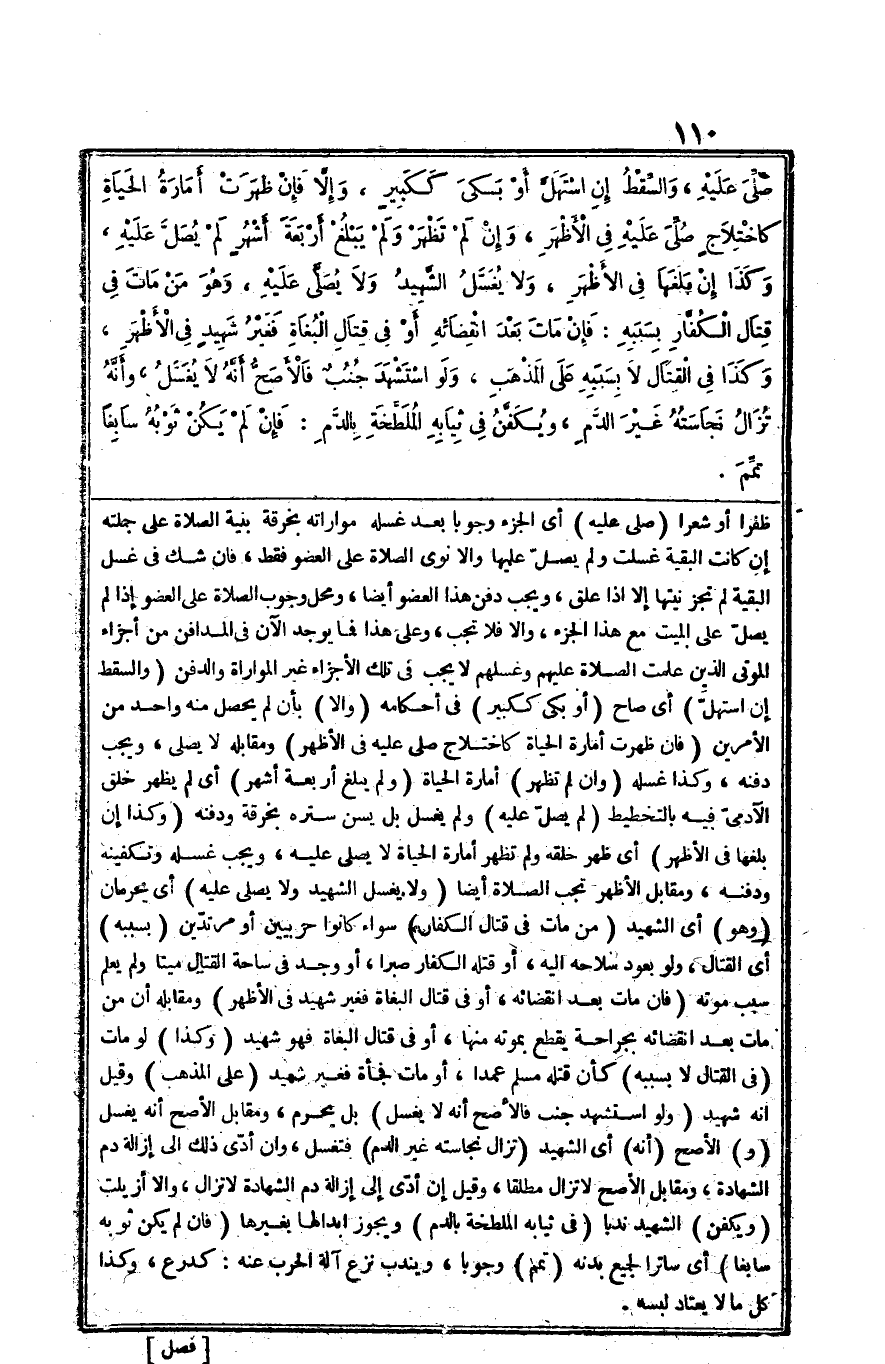 ١١٠
صُلِّىَ عَلَيْهِ ، وَالسِّقْطُ إِنِ اسْتَهَلَّ أَوْ بَكَى كَكَبِيرٍ ، وَإِلَّا فَإِنْ ظَهَرَتْ أَمَارَةُ الحَيَاةِ
كَاخْتِلَاجٍ صُلِّىَ عَلَيْهِ فِى الْأَظْهَرِ ، وَإِنْ لَمْ تَظْهَرْ وَلَمْ يَبْلُغْ أَرْبَعَةَ أَشْهُرٍ لَمْ يُصَلَّ عَلَيْهِ ،
وَكَذَا إِنْ بَلَغَهَا فِى الأَظْهَرِ ، وَلَا يُغَسَّلُ الشَّهِيدُ وَلَا يُصَلَّى عَلَيْهِ ، وَهُوَ مَنْ مَاتَ فِى
قِتَالِ الْكُفَّارِ بِسَبَبِهِ : فَإِنْ مَاتَ بَعْدَ انْقِضَائِهِ أَوْ فِى قِتَالِ الْبُغَاةِ فَغَيْرُ شَهِيدٍ فِى الْأَظْهَرِ ،
وَكَذَا فِى الْقِتَالِ لَا بِسَبَبِهِ عَلَى المَذْهَبِ ، وَلَوِ اسْتُشْهِدَ جُنُبٌ فَالْأَصَحُّ أَنَّهُ لَا يُغَسَّلُ ، وأَنَّهُ
تُزَالُ نَجَاسَتُهُ غَيْرَ الدَّمِ ، ويُكَفَّنُ فِى ثِيَابِهِ الْمُلَطَّخَةِ بِالدَّمِ : فَإِنْ لَمْ يَكُنْ ثَوْبُهُ سَابِغًا
تُمِّمَ .
ظفرا أو شعرا (صلى عليه) أى الجزء وجوبا بعد غسله مواراته بخرقة بنية الصلاة على جملته
إن كانت البقية غسلت ولم يصلّ عليها والا نوى الصلاة على العضو فقط ، فان شك فى غسل
البقية لم تجز نيتها إلا اذا علق ، ويجب دفن هذا العضو أيضا ، ومحل وجوب الصلاة على العضو إذا لم
يصلّ على الميت مع هذا الجزء ، والا فلا تجب ، وعلى هذا فما يوجد الآن فى المدافن من أجزاء
الموتى الذين علمت الصلاة عليهم وغسلهم لا يجب فى تلك الأجزاء غير المواراة والدفن (والسقط
إن استهلّ) أى صاح (أو بكى ككبير) فى أحكامه (والا) بأن لم يحصل منه واحد من
الأمرين (فان ظهرت أمارة الحياة كاختلاج صلى عليه فى الأظهر) ومقابله لا يصلى ، ويجب
دفنه ، وكذا غسله (وان لم تظهر) أمارة الحياة (ولم يبلغ أربعة أشهر) أى لم يظهر خلق
الآدمىّ فيه بالتخطيط (لم يصلّ عليه) ولم يغسل بل يسن ستره بخرقة ودفنه (وكذا إن
بلغها فى الأظهر) أى ظهر خلقه ولم تظهر أمارة الحياة لا يصلى عليه ، ويجب غسله وتكفينه
ودفنه ، ومقابل الأظهر تجب الصلاة أيضا (ولا يغسل الشهيد ولا يصلى عليه) أى يحرمان
(وهو) أى الشهيد (من مات فى قتال الكفار) سواء كانوا حربيين أو مرتدّين (بسببه)
أى القتال ، ولو بعود سلاحه اليه ، أو قتله الكفار صبرا ، أو وجد فى ساحة القتال ميتا ولم يعلم
سبب موته (فان مات بعد انقضائه ، أو فى قتال البغاة فغير شهيد فى الأظهر) ومقابله أن من
مات بعد انقضائه بجراحة يقطع بموته منها ، أو فى قتال البغاة فهو شهيد (وكذا) لو مات
(فى القتال لا بسببه) كأن قتله مسلم عمدا ، أو مات فجأة فغير شهيد (على المذهب) وقيل
انه شهيد (ولو استشهد جنب فالأصح أنه لا يغسل) بل يحرم ، ومقابل الأصح أنه يغسل
(و) الأصح (أنه) أى الشهيد (تزال نجاسته غير الدم) فتغسل ، وان أدّى ذلك الى إزالة دم
الشهادة ، ومقابل الأصح لاتزال مطلقا ، وقيل إن أدّى إلى إزالة دم الشهادة لاتزال ، والا أزيلت
(ويكفن) الشهيد ندبا (فى ثيابه الملطخة بالدم) ويجوز ابدالها بغيرها (فان لم يكن ثوبه
سابغا) أى ساترا لجميع بدنه (تمم) وجوبا ، ويندب نزع آلة الحرب عنه : كدرع ، وكذا
كل ما لا يعتاد لبسه .
[فصل]